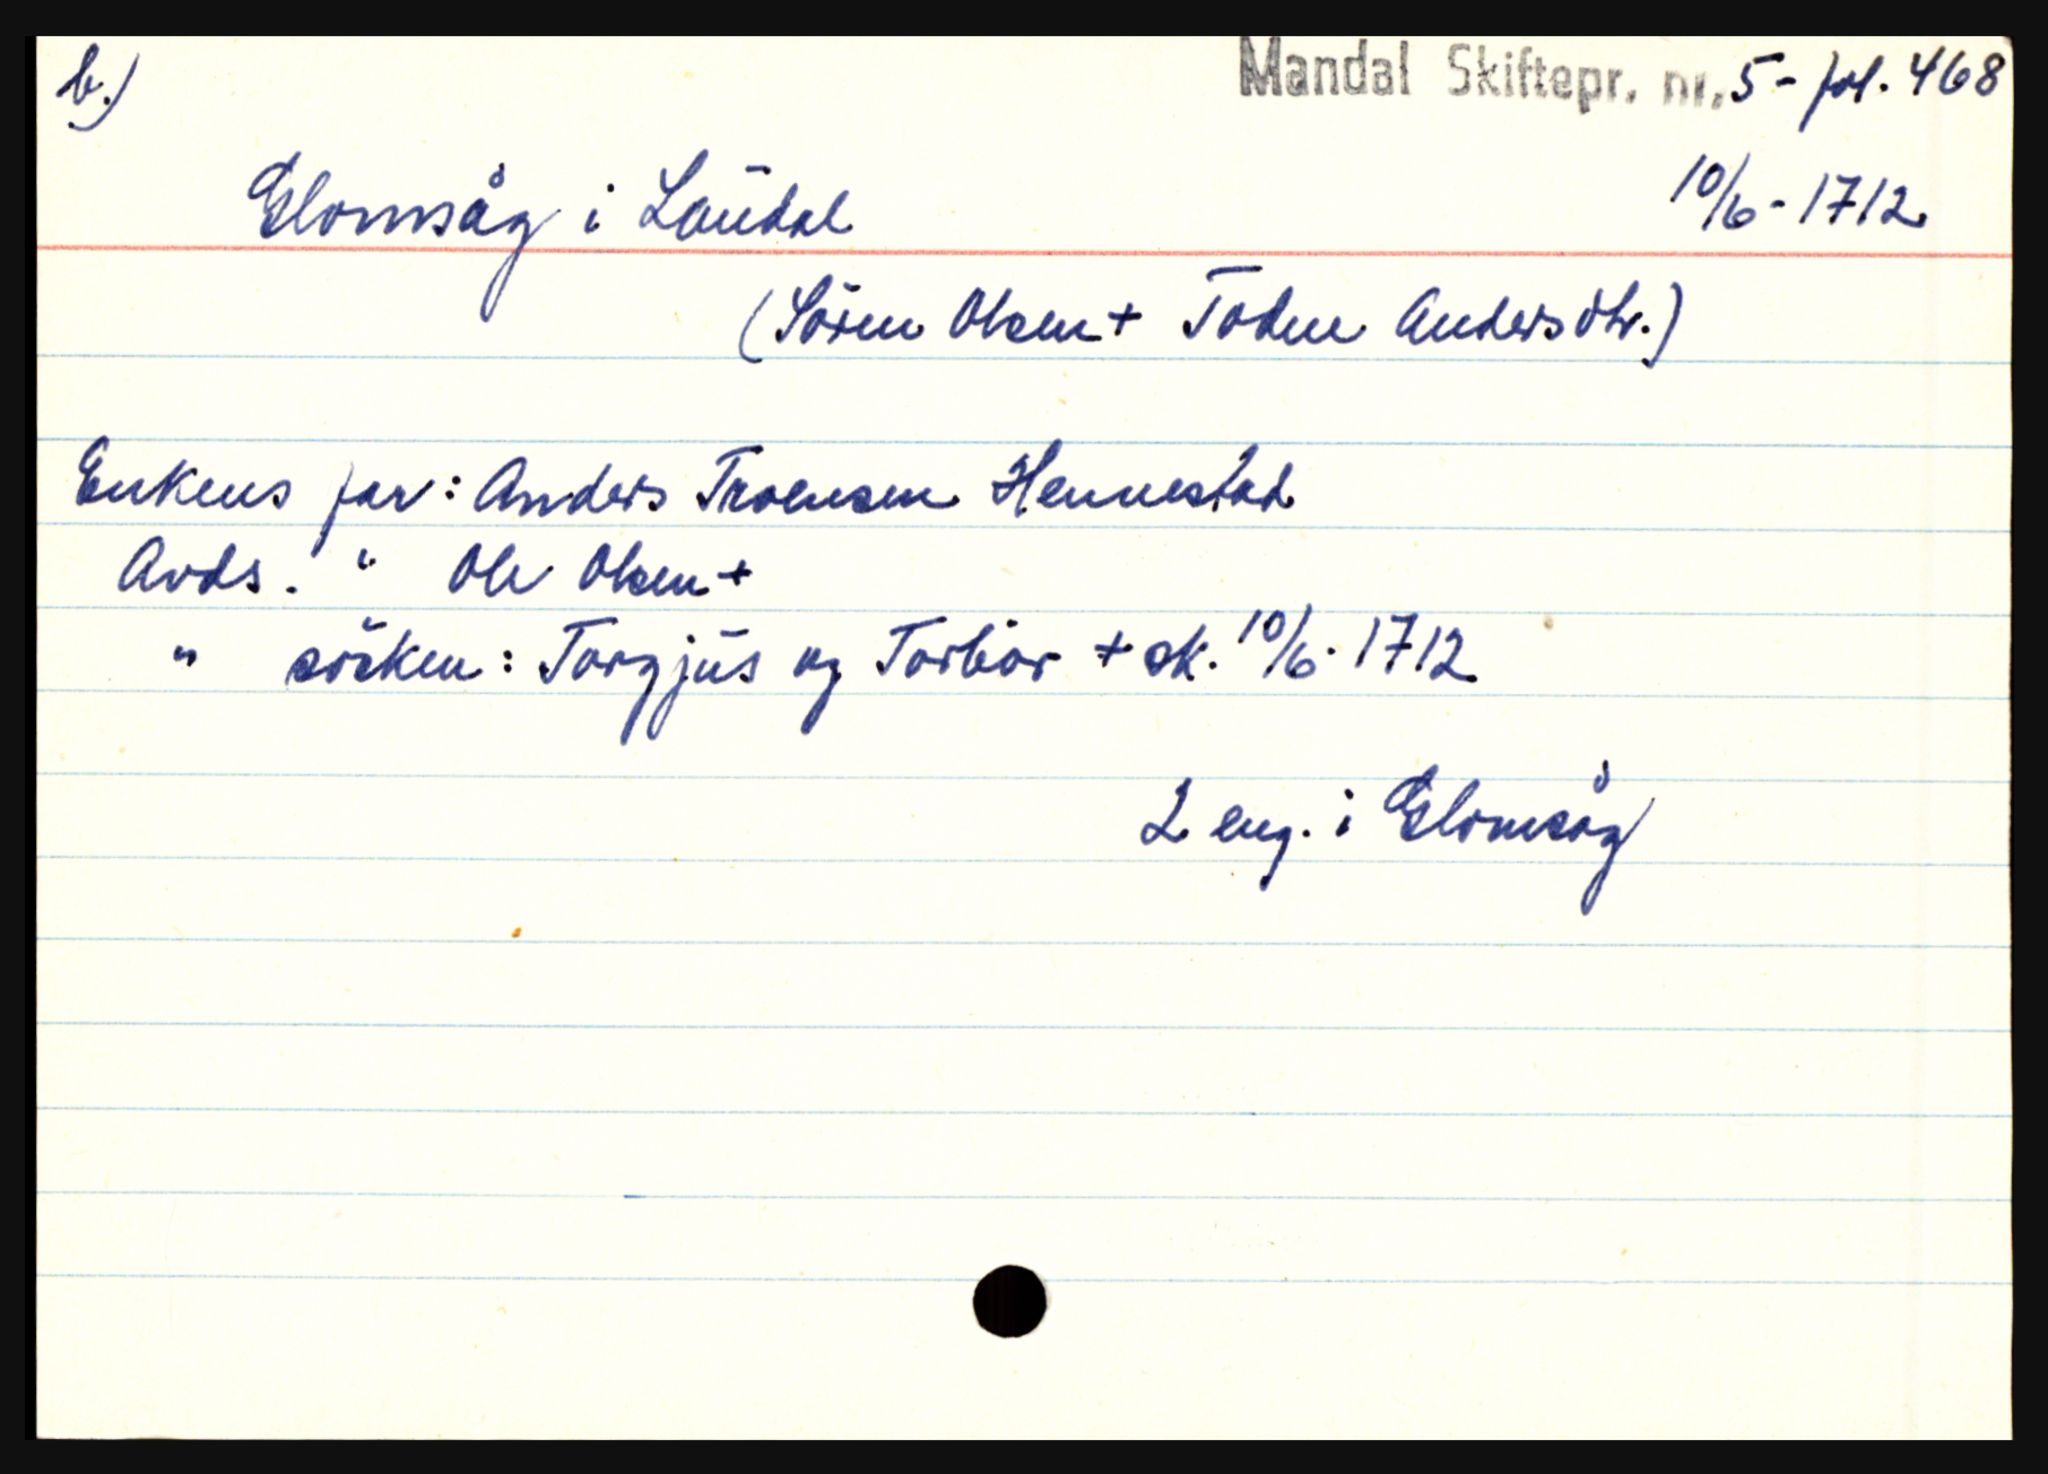 b.)
Mandal Skiftepr. nr. 5 - fol. 468
10/6 - 1712
Glomsåg i Laudal
(Sören Olsen + Todne Andersdtr.)
Enkens far: Anders Troensen Hennestad
Avds. " Ole Olsen +
" sösken: Torgjus og Torbör + sk. 10/6. 1712
2 eng. i Glomsåg